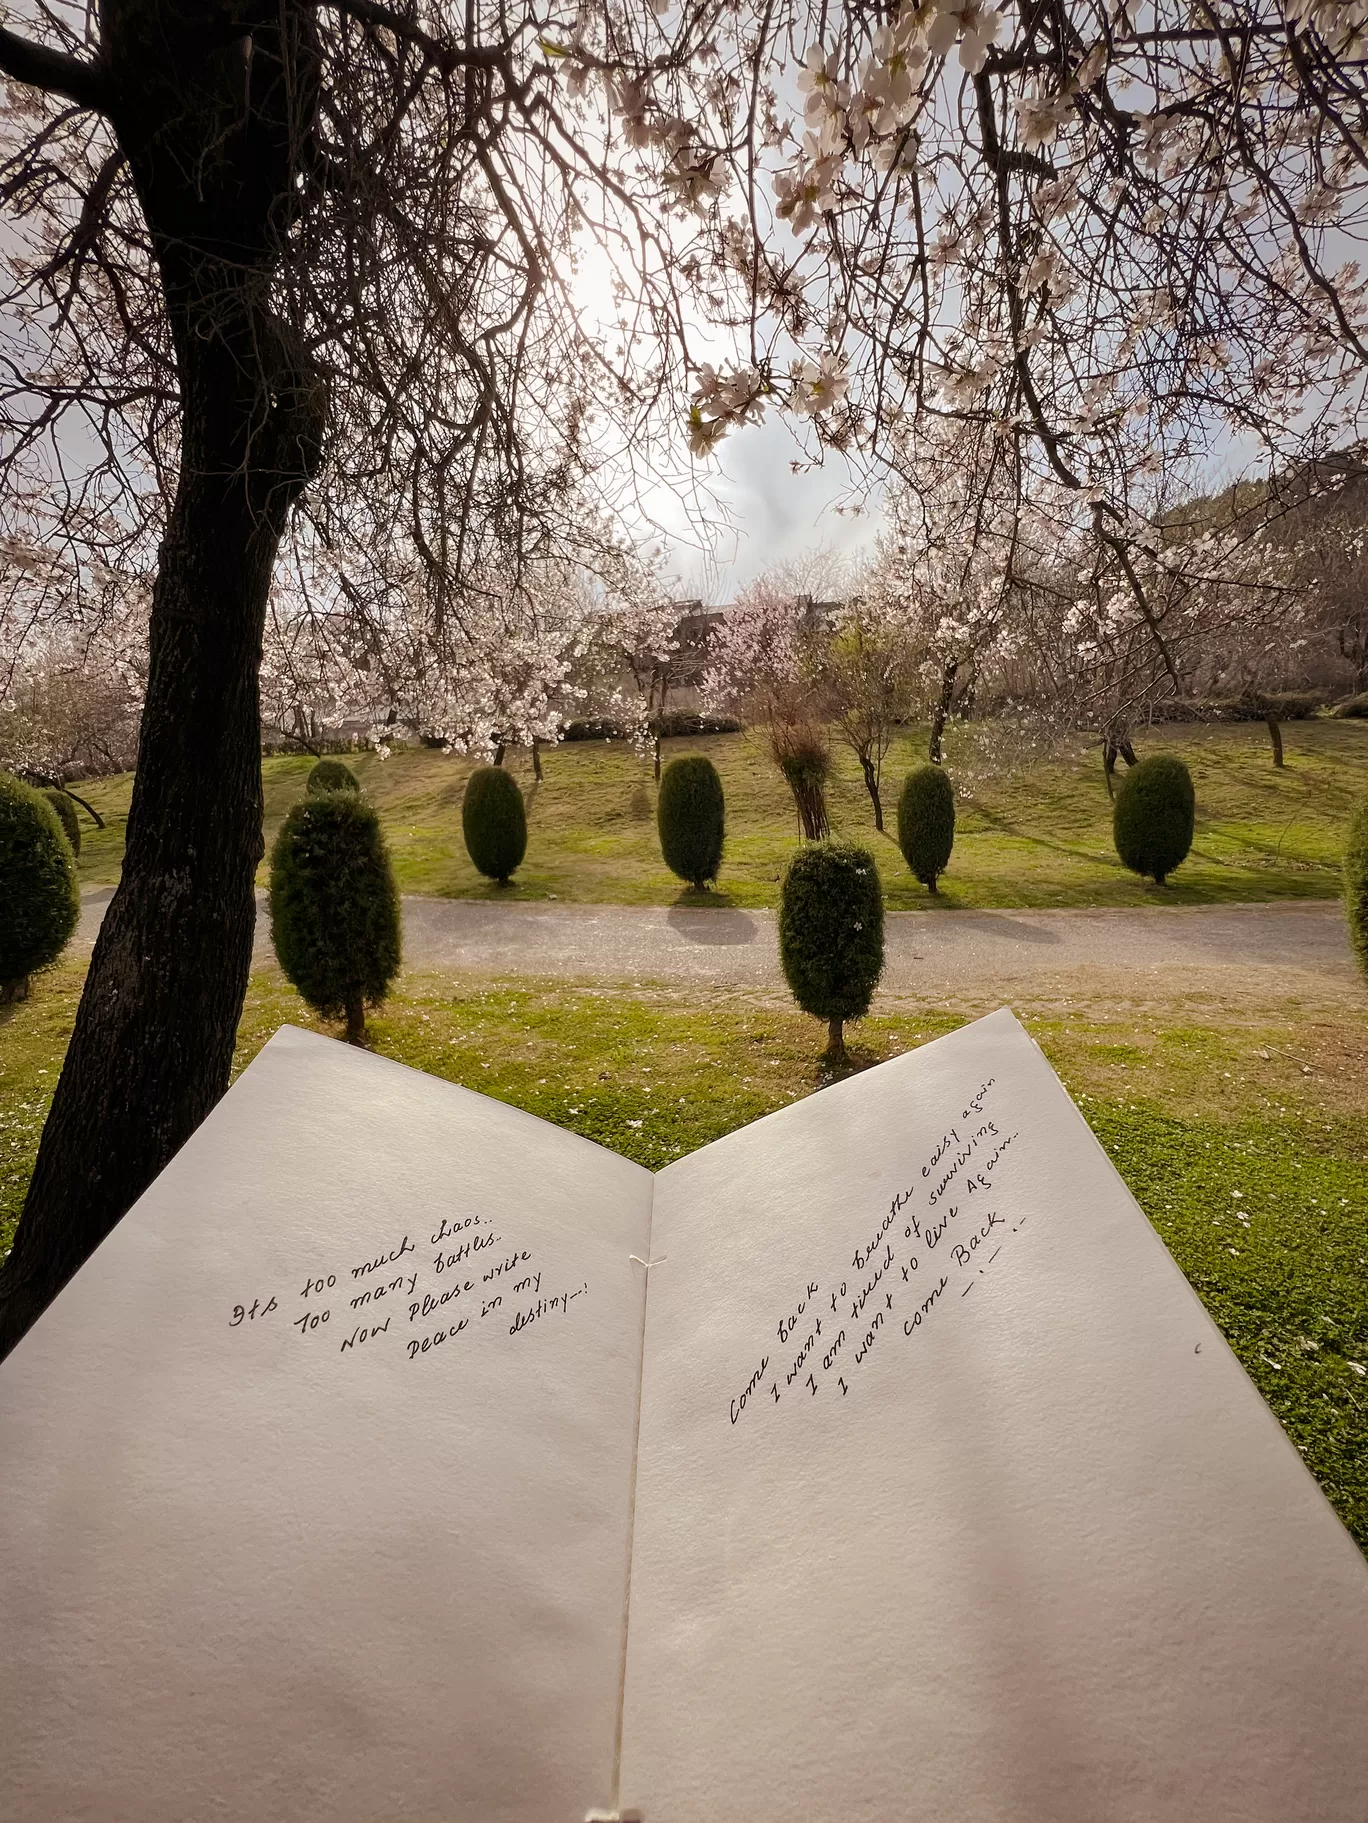 Its too much chaos..
Too many battles..
Now Please write
Peace in my
destiny--!
Come back to breathe eaisy again
I want to
I am tired of surviving
I want to live Again..
come Back